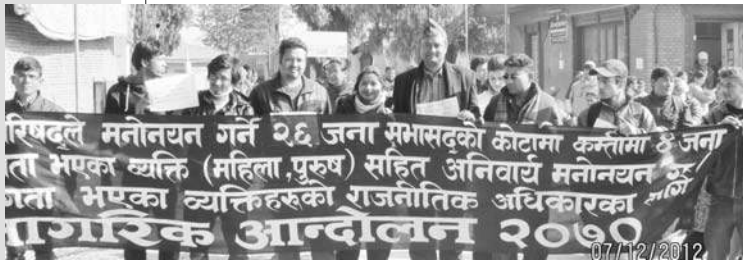 रिषद्ले मनोनयन गर्ने २६ जना सभासद्को कोटामा कम्तीमा ४ जना
ता भएका व्यक्ति (महिला,पुरुष) सहित अनिवार्य मनोनयन गर
गता भएका व्यक्तिहरुको राजनीतिक अधिकारका लागि
नागरिक आन्दोलन २०७०
07/12/2012